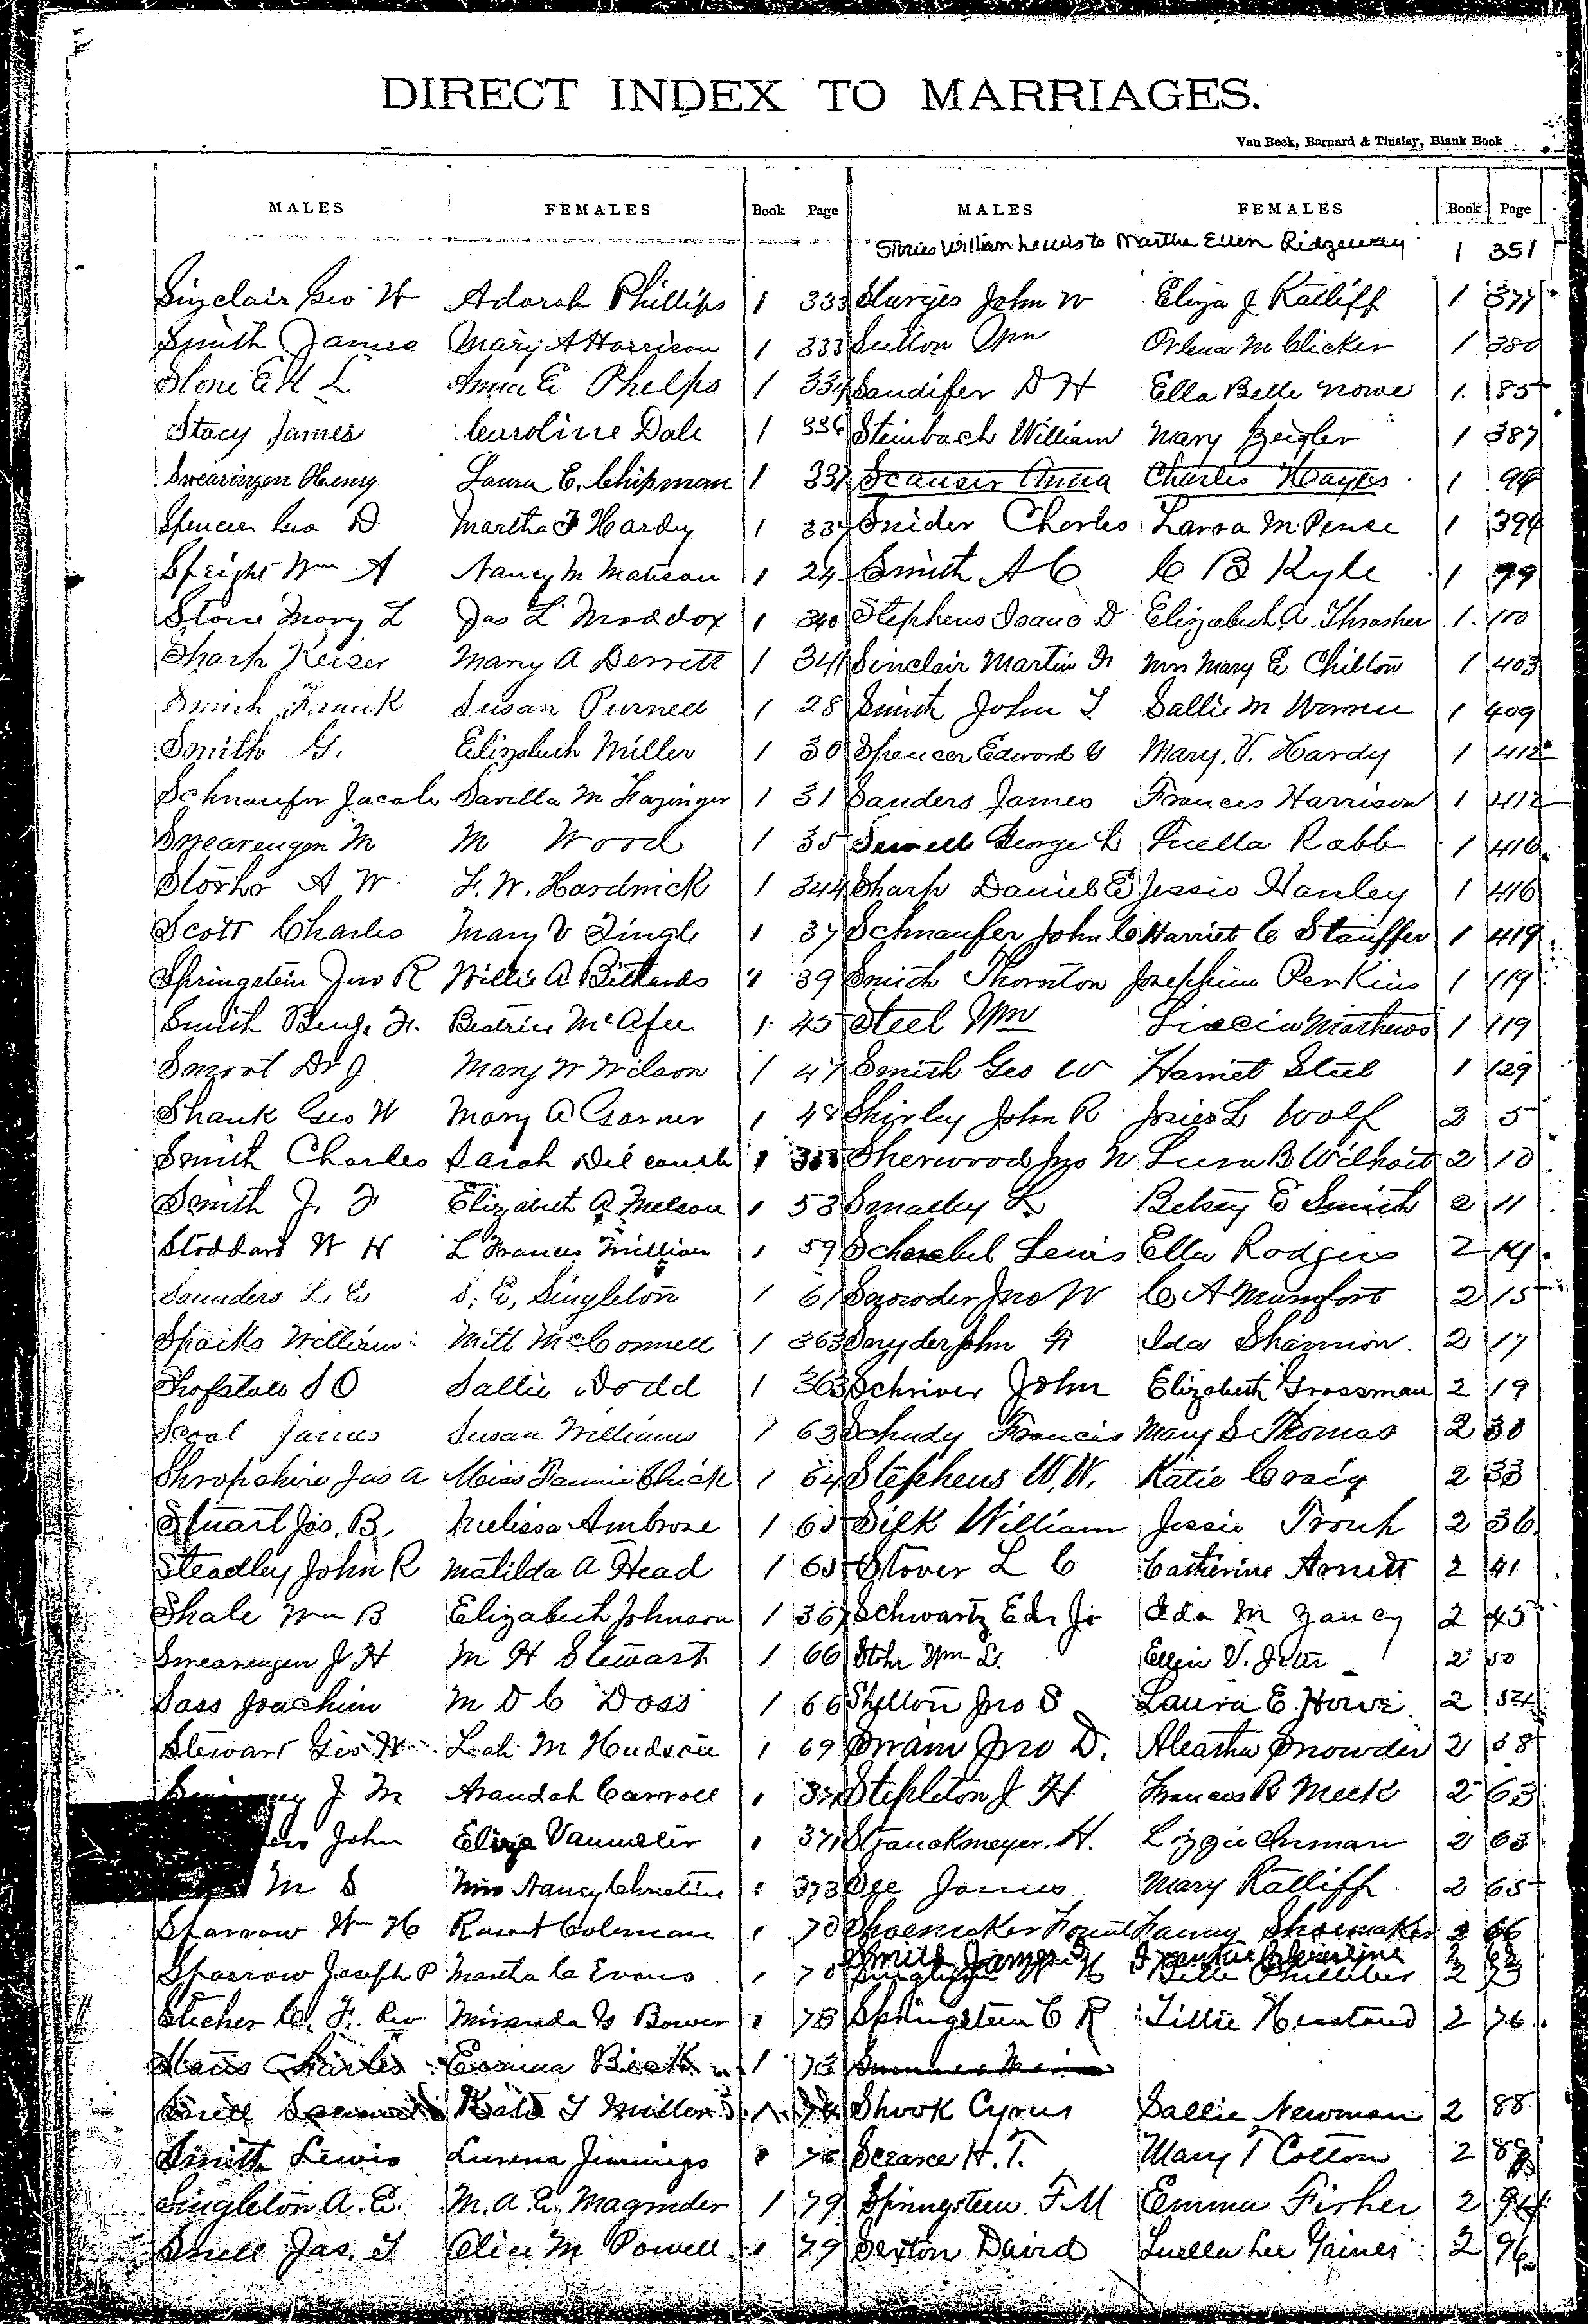 DIRECT INDEX TO MARRIAGES.
Van Beek, Barnard & Tinsley, Blank Book
MALES FEMALES Book Page MALES FEMALES Book Page
William Lewis to Martha Ellen Ridgeway 1 351
Sinclair Geo W Adorah Phillips 1 333 Sturges John W Eliza J Ratliff 1 377
Smith James Mary A Harrison 1 333 Sutton Wm Orlena McClicker 1 380
Anna E Phelps 1 334 Sandifer D H Ella Belle Nowe 1 85
Stacy James Caroline Dale 1 336 Steinbach William Mary Zeigler 1 387
Swearingen Henry Laura C. Chipman 1 337 Anna Charles Hayes 1 94
Spencer Geo D Martha F Hardy 1 337 Snider Charles Laroa M Pense 1 394
Speight Wm A Nancy M Matison 1 24 Smith A C C B Kyle 1 99
Stone Mary L Jas L Maddox 1 340 Stephens Isaac D Elizabeth A. Thrasher 1 100
Sharp Keiser Mary A Derrett 1 341 Sinclair Martin Jr Mrs Mary E Chilton 1 403
Smith Frank Susan Purnell 1 28 Smith John T Sallie M Warren 1 409
Smith G. Elizabeth Miller 1 30 Spencer Edward G Mary. V. Hardy 1 412
Schnaufer Jacob Savilla M Fazinger 1 31 Sanders James Frances Harrison 1 412
Swearengen M M Wood 1 35 Sewell George L Luella Rabb 1 416
Storho A W. F. W. Hardwick 1 344 Sharp Daniel E Jessie Hanley 1 416
Scott Charles Mary V Zingle 1 37 Schnaufer John C Harriet C Stauffer 1 419
Springstein Jno R Willie A Billards 1 39 Smith Thornton Josephine Perkins 1 119
Smith Benj. F. Beatrice McAfee 1 45 Steel Wm Mathews 1 119
Smoot Dr J Mary W Wilson 1 47 Smith Geo W Harriet Steel 1 129
Shank Geo W Mary A Garner 1 48 Shirley John R Josies L Wolf 2 5
Smith Charles Sarah 1 Sherwood Jno W Lura B Wilhoit 2 10
Smith J. F Elizabeth A Melson 1 53 Smalley L. Betsey E Smith 2 11
Stoddard W H L Frances Million 1 59 Lewis Ella Rodgers 2 14
Saunders L. E S. E. Singleton 1 61 Snowder Jno W C A Mumfort 2 15
Sparks William Mitt McConnell 1 363 Snyder John F Ida Shannon 2 17
Shofstall S O Sallie Dodd 1 363 Schriver John Elizabeth Grossman 2 19
James Susan Williams 1 63 Schudy Francis Mary S Thomas 2 30
Shropshire Jas A Miss Fannie Chick 1 64 Stephens W. W. Katie Craig 2 33
Stuart Jos. B. Melissa Ambrose 1 65 Silk William Jessie Trouh 2 36
Steadley John R Matilda A Head 1 65 Stover L C Catherine Arnett 2 41
Shale Wm B Elizabeth Johnson 1 367 Schwartz Ed. Jr Ida M Yancy 2 45
Swearengen J H M H Stewart 1 66 Stohr Wm L. Ellen V. Jeter 2 50
Sass Joachim M D C Doss 1 66 Shelton Jno S Laura E. Howe 2 52
Stewart Geo W Leah M Hudson 1 69 Swain Jno D. Aleatha Snowder 2 58
J M Arandah Carroll 1 371 Stepleton J H Frances R Meek 2 63
John Eliza Vanmeter 1 371 Stjauckmeyer. H. Lizzie Inman 2 63
M S Mrs Nancy Christine 1 373 See James Mary Ratliff 2 65
Sparrow Wm H Coleman 1 70 Shoemaker Fanny Shoemaker 2 66
Smith James 2
Sparrow Joseph P Martha C Evans 1 70 Belle Philliber 2 73
Sticher C. F. Rev Miranda G Bower 1 73 Springsteen C R Lillie Hiestand 2 76
Charles Emma 1 73
Kate T Miller 1 74 Shook Cyrus Sallie Newman 2 88
Smith Lewis Lurena Jennings 1 76 Scearce H. T. Mary T Cotton 2 89
Singleton A. E. M. A. E. Magruder 1 79 Springsteen F M Emma Fisher 2 94
Snell Jas. T Alice M Powell 1 79 Sexton David Luella Lee Gaines 2 96